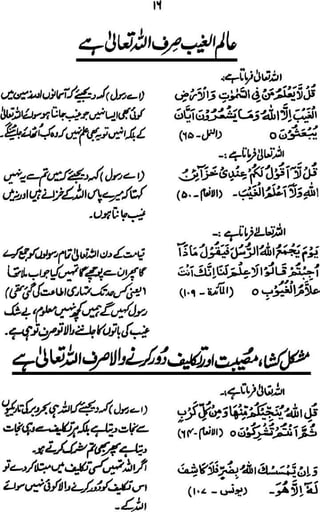 ۱۶
عالم الغیب صرف اللہ تعالیٰ ہے
اللہ تعالیٰ فرماتا ہے:
قُلْ لَّا یَعْلَمُ مَنْ فِی السَّمٰوٰتِ وَالْاَرْضِ
الْغَیْبَ اِلَّا اللهُ وَمَا یَشْعُرُوْنَ اَیَّانَ
یُبْعَثُوْنَ ۝ (النمل - ۶۵)
(اے رسول) کہہ دیجئے کہ آسمانوں اور زمین میں
کوئی بھی ایسا نہیں جو غیب جانتا ہو سوائے اللہ تعالیٰ
کے بلکہ انہیں تو یہ بھی علم نہیں کہ وہ کب اٹھائے جائیں گے۔
اللہ تعالیٰ فرماتا ہے:-
قُلْ لَّا اَقُوْلُ لَکُمْ عِنْدِیْ خَزَآئِنُ
اللهِ وَلَا اَعْلَمُ الْغَیْبَ۔ (الانعام - ۵۰)
(اے رسول) کہہ دیجئے کہ میں تم سے یہ نہیں
کہتا کہ میرے پاس اللہ کے خزانے ہیں اور نہ میں
غیب جانتا ہوں۔
اللہ تعالیٰ فرماتا ہے:-
یَوْمَ یَجْمَعُ اللهُ الرُّسُلَ فَیَقُوْلُ مَاذَا
اُجِبْتُمْ قَالُوْا لَا عِلْمَ لَنَا اِنَّکَ اَنْتَ
عَلَّامُ الْغُیُوْبِ ۝ (المآئدۃ - ۱۰۹)
قیامت کے دن اللہ تعالیٰ تمام رسولوں کو جمع کرے
گا پھر ان سے پوچھے گا تمہیں کیا جواب ملا تھا
(یعنی کس حد تک تمہاری اطاعت کی گئی تھی)
رسول کہیں گے ہمیں کچھ نہیں معلوم، بے شک
غیب کی باتوں کا جاننے والا تو صرف تو ہی ہے۔
مشکل کشا، مصیبت اور تکالیف دور کرنے والا صرف اللہ تعالیٰ ہے
اللہ تعالیٰ فرماتا ہے:-
قُلِ اللهُ یُنَجِّیْکُمْ مِّنْهَا وَمِنْ کُلِّ کَرْبٍ
ثُمَّ اَنْتُمْ تُشْرِکُوْنَ ۝ (الانعام - ۶۴)
(اے رسول) کہہ دیجئے کہ اللہ ہی بحر و بر کی تاریکیوں
سے نجات دیتا ہے بلکہ ہر تکلیف سے وہی نجات
دیتا ہے پھر بھی تم شرک کرتے ہو۔
وَاِنْ یَّمْسَسْکَ اللهُ بِضُرٍّ فَلَا کَاشِفَ
لَهٗ اِلَّا هُوَ۔ (یونس - ۱۰۷)
اگر اللہ تمہیں کسی تکلیف میں مبتلا کر دے تو
اس تکلیف کو دور کرنے والا کوئی نہیں سوائے
اللہ کے۔